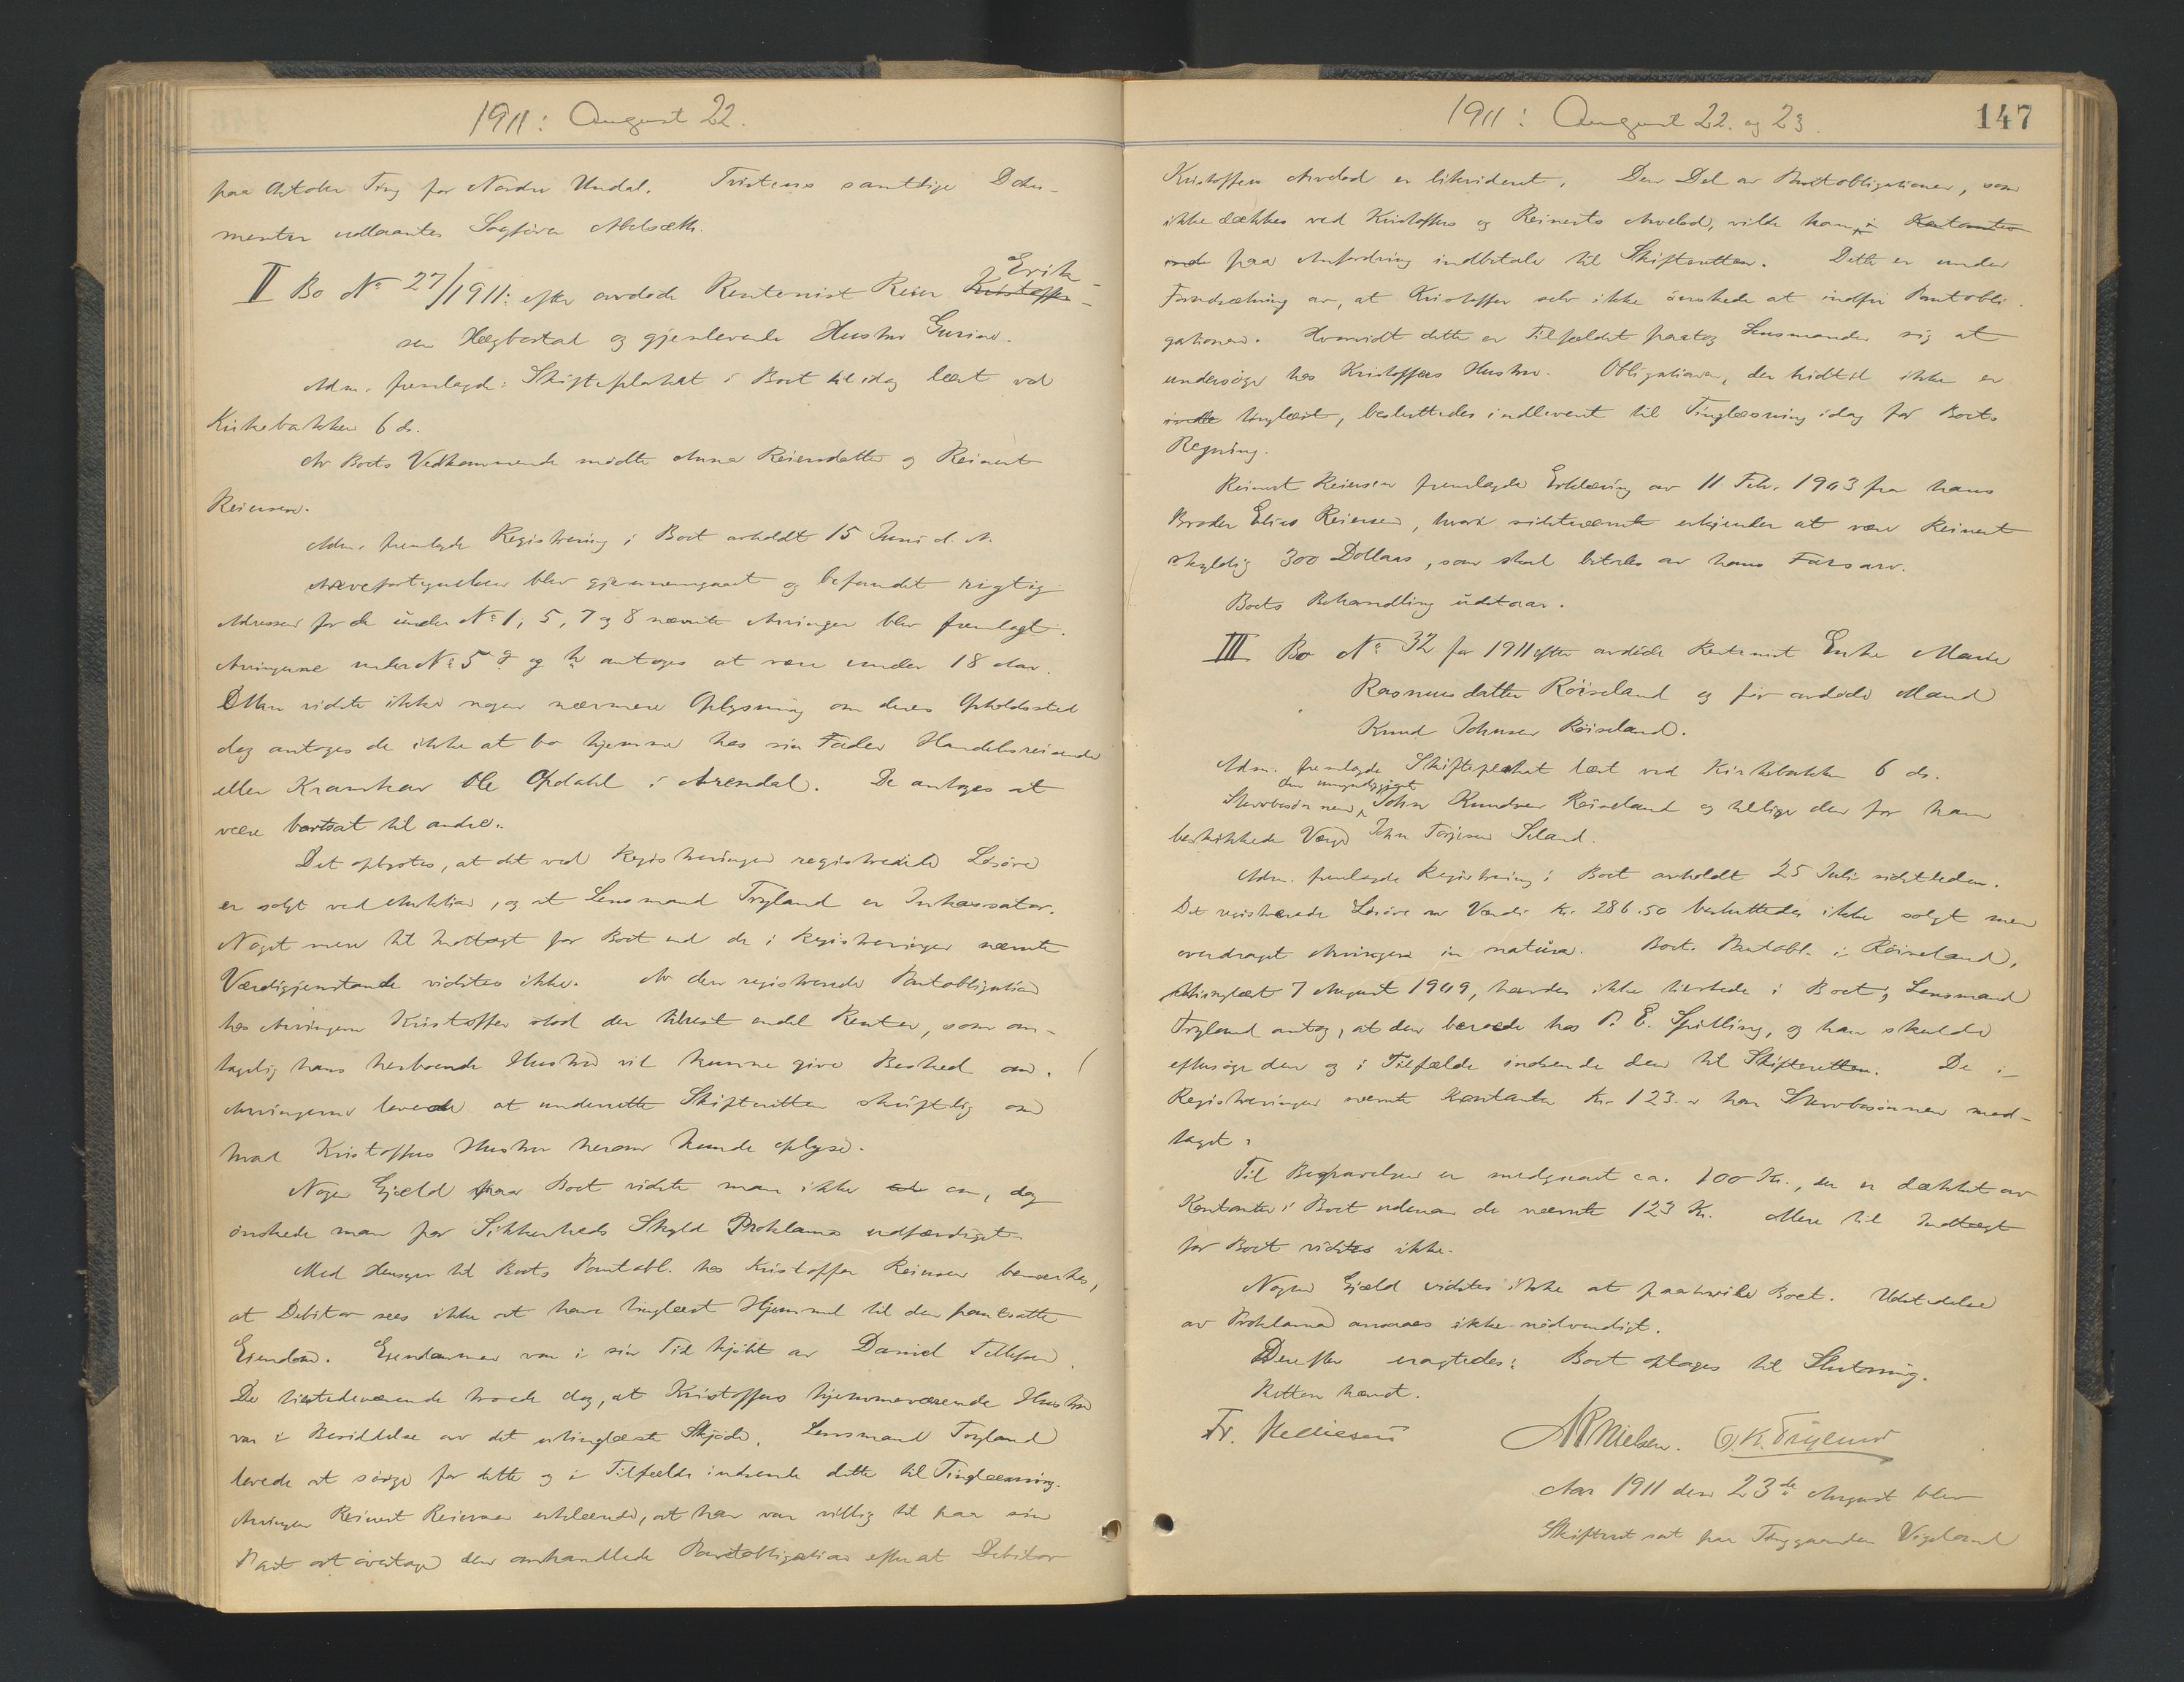 1911: August 22.
paa Oktober Ting for Nordre Undal. Tvistens samtlige Doku-
menter udlaantes Sagfører Abelseth.
II Bo No 27/1911: efter avdøde Rentenist Reier Kristoffer- Erik-
sen Hægbostad og gjenlevende Hustru Gurine.
Adm. fremlagde: Skifteplakat i Boet til idag læst ved
Kirkebakken 6 ds.
Av Boets Vedkommende mødte Anna Reiersdatter og Reinert
Reiersen.
Adm. fremlagde Registrering i Boet avholdt 15 Juni d. A.
Arvefortegnelsen blev gjennemgaaet og befundet rigtig
Adresser for de under No 1, 5, 7 og 8 nævnte Arvinger blev fremlagt.
Arvingerne under No 5 g og h antoges at være under 18 Aar.
Man vidste ikke nogen nærmere Oplysning om deres Opholdssted
dog antoges de ikke at bo hjemme hos sin Fader Handelsreisende
eller Kramkar Ole Opdahl i Arendal. De antoges at
være bortsat til andre.
Det oplystes, at det ved Registreringen registrerede Løsøre
er solgt ved Auktion, og at Lensmand Tryland er Inkassator.
Noget mere til Indtægt for Boet end de i Registreringen nævnte
Værdigjenstande vidstes ikke. Av den registrerede Pantobligation
hos Arvingen Kristoffer stod der tilrest endel Renter, som an-
tagelig hans herboende Hustru vil kunne give Besked om.
Arvingerne lovede at underrette Skifteretten skriftlig om
hvad Kristoffers Hustru herom kunde oplyse.
Nogen Gjæld paa Boet vidste man ikke om, dog
ønskede man for Sikkerheds Skyld Proklama udfærdiget.
Med Hensyn til Boets Pantobl. hos Kristoffer Reiersen bemærkes,
at Debitor sees ikke at have tinglæst Hjemmel til den pantsatte
Eiendom. Eiendommen var i sin Tid kjøbt av Daniel Tellefsen.
De tilstedeværende troede dog, at Kristoffers hjemmeværende Hustru
var i Besiddelse av det utinglæste Skjøde. Lensmand Tryland
lovede at sørge for dette og i Tilfælde indsende dette til Tinglæsning.
Arvingen Reinert Reiersen erklærede, at han var villig til paa sin
Part at overtage den omhandlede Pantobligation efterat Debitor
1911: August 22. og 23. 147
Kristoffers Arvelod er likvideret. Den Del av Pantobligationen, som
ikke dækkes ved Kristoffers og Reinerts Arvelod, vilde han i Kontanter
paa Anfordring indbetale til Skifteretten. Dette er under
Forudsætning av, at Kristoffer selv ikke ønskede at indfri Pantobli-
gationen. Hvorvidt dette er Tilfældet paatog Lensmanden sig at
undersøge hos Kristoffers Hustru. Obligationen, der hidtil ikke er
tinglæst, besluttedes indleveret til Tinglæsning idag for Boets
Regning.
Reinert Reiersen fremlagde Erklæring av 11 Febr. 1903 fra hans
Broder Elias Reiersen, hvori sidstnævnte erkjender at være Reinert
skyldig 300 Dollars, som skal betales av hans Farsarv.
Boets Behandling udstaar.
III Bo No 32 for 1911 efter avdøde Rentenist Enke Marie
Rasmusdatter Røiseland og før avdøde Mand
Knud Johnsen Røiseland.
Adm. fremlagde Skifteplakat læst ved Kirkebakken 6 ds.
den umyndiggjorte
Stervbosønnen, John Knudsen Røiseland og tillige den for ham
beskikkede Værge John Torjesen Seland.
Adm. fremlagde Registrering i Boet avholdt 25 Juli sidstleden.
Det registrerede Løsøre av Værdi Kr. 286.50 besluttedes ikke solgt men
overdraget Arvingen in natura. Boets Pantobl. i Røiseland,
tinglæst 7 August 1909, havdes ikke tilstede i Boet; Lensmand
Tryland antog, at den beroede hos P. E. Spilling, og han skulde
eftersøge den og i Tilfælde indsende den til Skifteretten. De i
Registreringen nævnte Kontanter Kr. 123.- har Stervbosønnen mod-
taget.
Til Begravelsen er medgaaet ca. 100 Kr., der er dækket av
Kontanter i Boet udenom de nævnte 123 Kr. Mere til Indtægt
for Boet vidstes ikke.
Nogen Gjæld vidstes ikke at paahvile Boet. Udstedelse
av Proklama ansaaes ikke nødvendigt.
Derefter eragtedes: Boet optages til Slutning.
Retten hævet.
Fr. Mellesen A R Nielsen. O. K. Tryland
Aar 1911 den 23de August blev
Skifteret sat paa Thinggaarden Vigeland